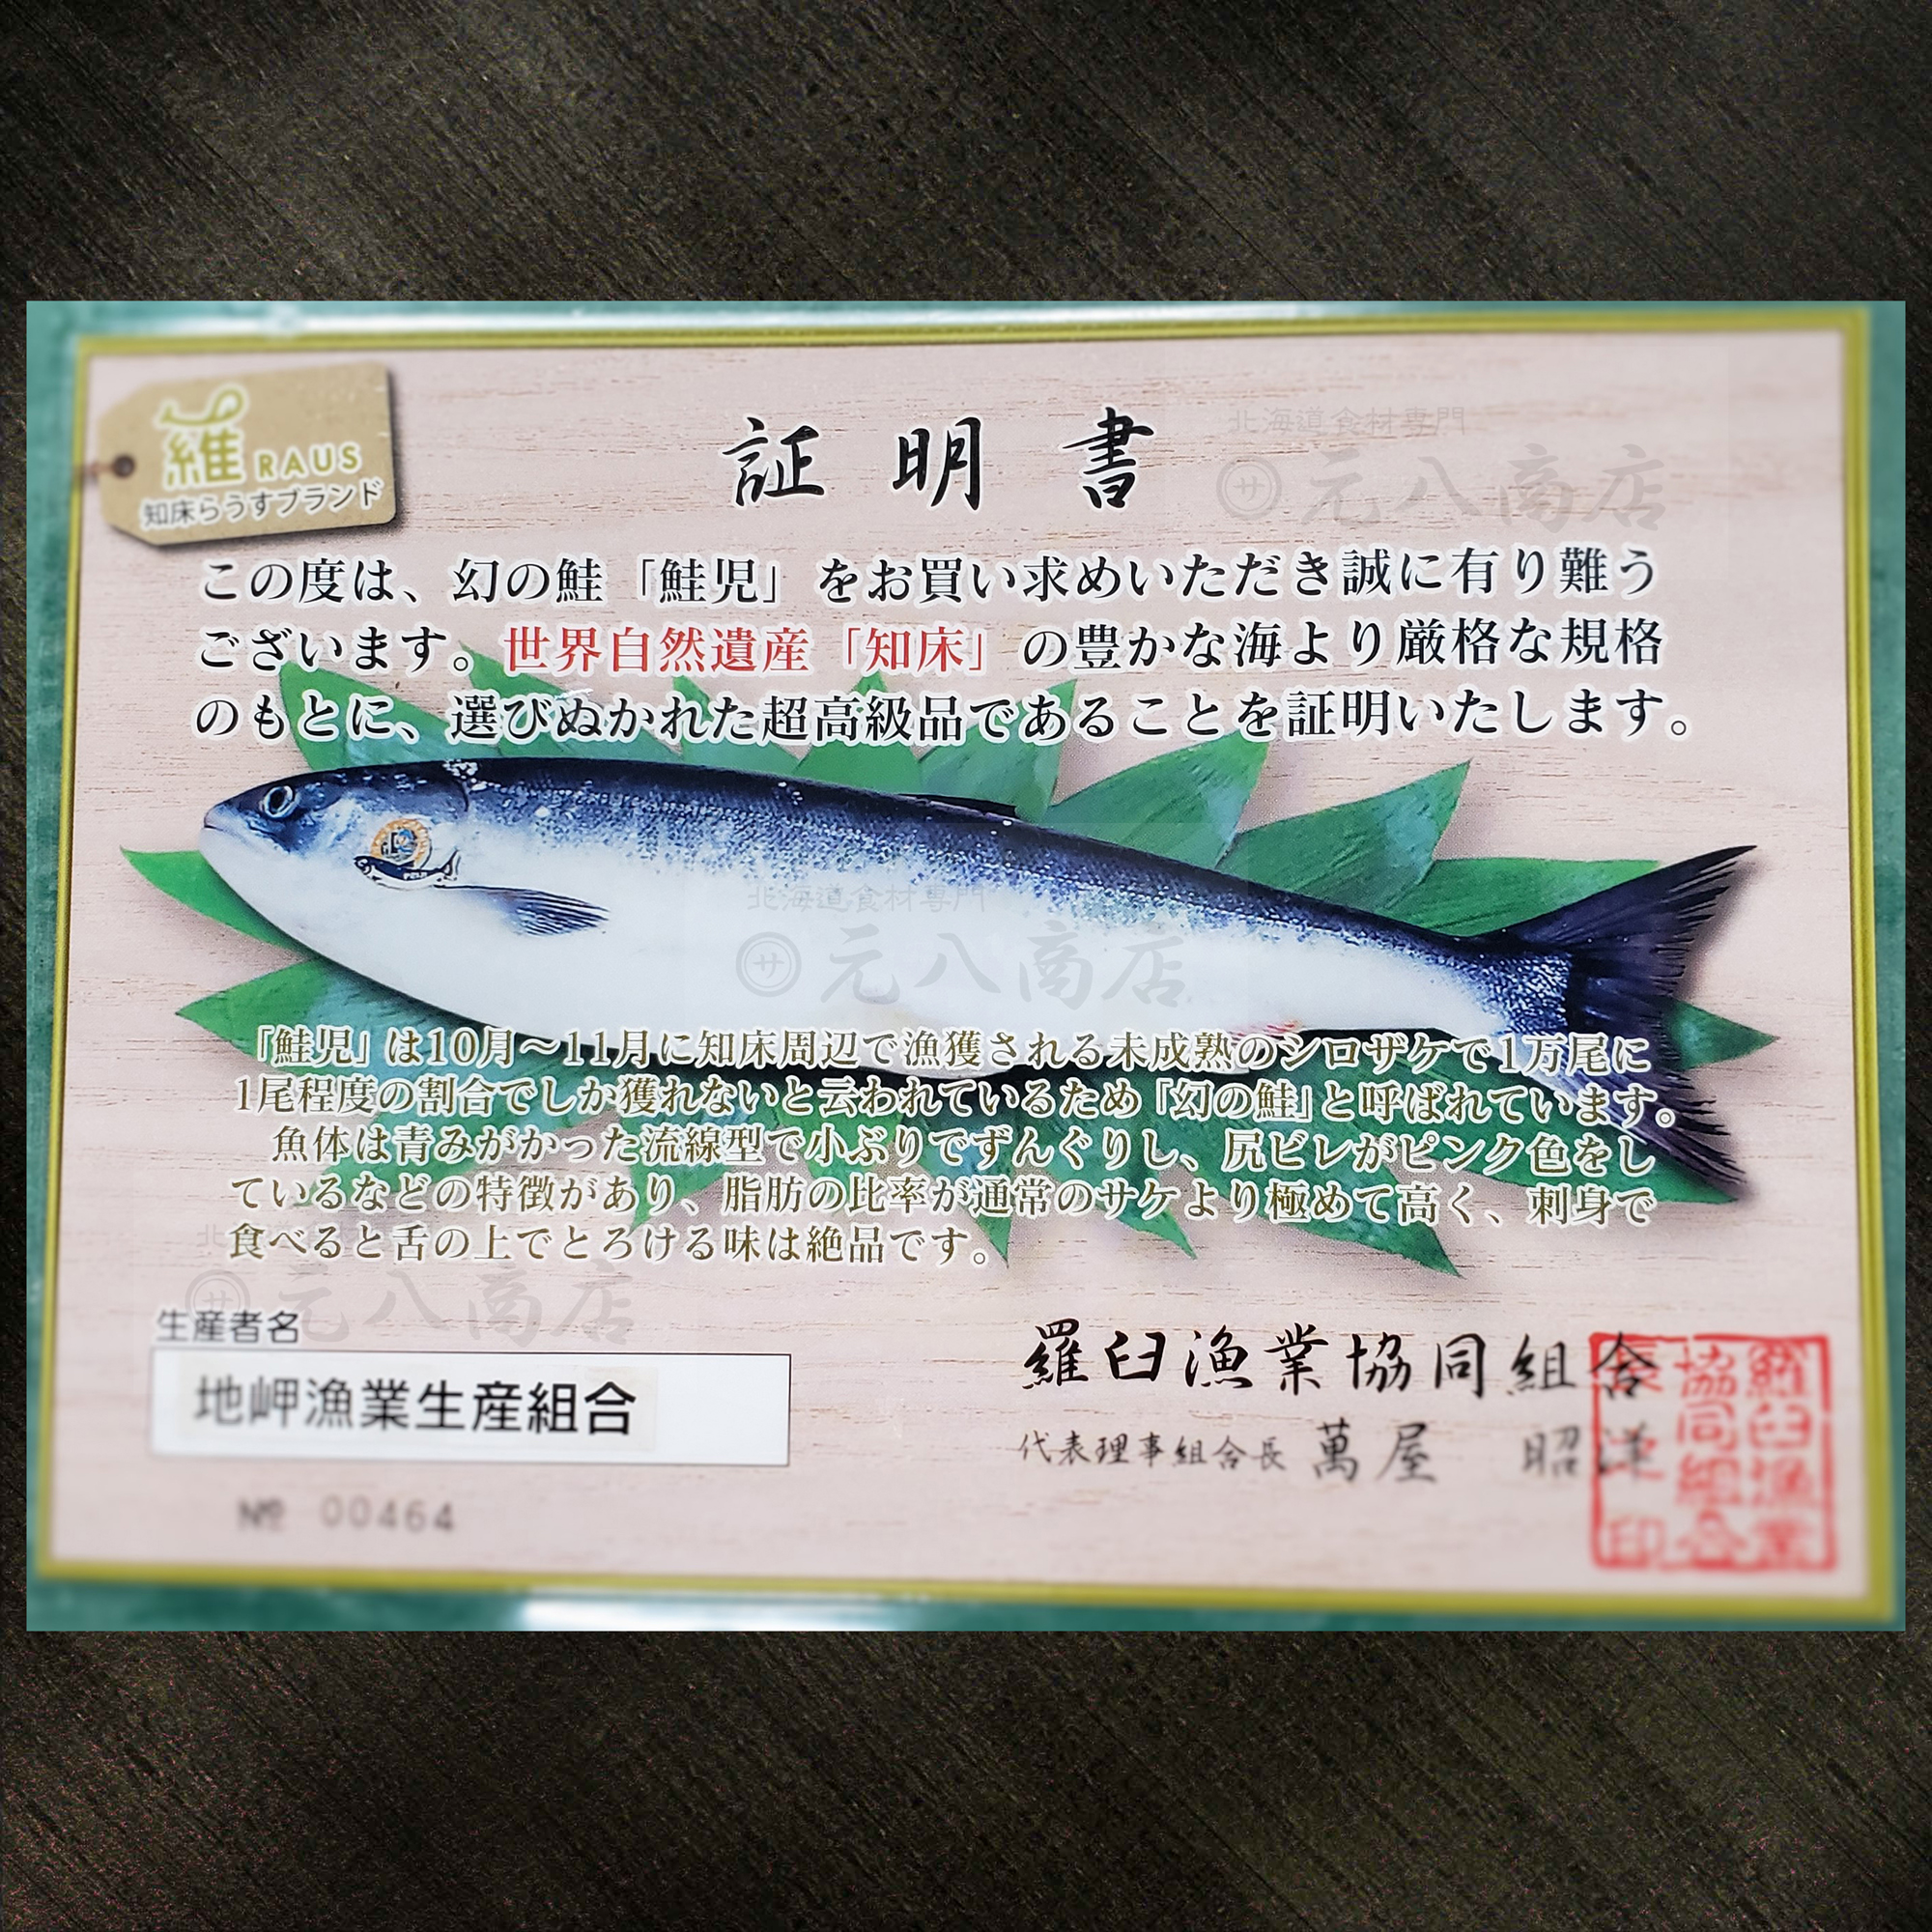 羅 RAUS
知床らうすブランド
証明書
北海道食材専門
サ 元八商店
この度は、幻の鮭「鮭児」をお買い求めいただき誠に有り難う
ございます。世界自然遺産「知床」の豊かな海より厳格な規格
のもとに、選びぬかれた超高級品であることを証明いたします。
北海道食材専門
サ 元八商店
「鮭児」は10月～11月に知床周辺で漁獲される未成熟のシロザケで1万尾に
1尾程度の割合でしか獲れないと云われているため「幻の鮭」と呼ばれています。
魚体は青みがかった流線型で小ぶりでずんぐりし、尻ビレがピンク色をし
ているなどの特徴があり、脂肪の比率が通常のサケより極めて高く、刺身で
食べると舌の上でとろける味は絶品です。
サ 元八商店
生産者名
地岬漁業生産組合
№ 00464
羅臼漁業協同組合
代表理事組合長 萬屋 昭洋
羅臼漁業
協同組合
長之印